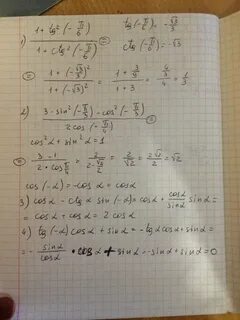 1) 1 + tg²(-π/6) / 1 + ctg²(-π/6) = tg(-π/6) = -√3/3
ctg(-π/6) = -√3
= 1 + (-√3/3)² / 1 + (-√3)² = 1 + 3/9 / 1 + 3 = 4/3 / 4 = 1/3
2) 3 - sin²(-π/3) - cos²(-π/3) / 2cos(-π/4) =
cos²α + sin²α = 1
= 3 - 1 / 2 · cos π/4 = 2 / 2 · √2/2 = 2/√2 = 2√2/2 = √2
cos(-α) = -cosα = cosα
3) cosα - ctgα sin(-α) = cosα + cosα/sinα sinα =
= cosα + cosα = 2cosα
4) tg(-α) cosα + sinα = -tgα cosα + sinα =
= - sinα/cosα · cosα + sinα = -sinα + sinα = 0